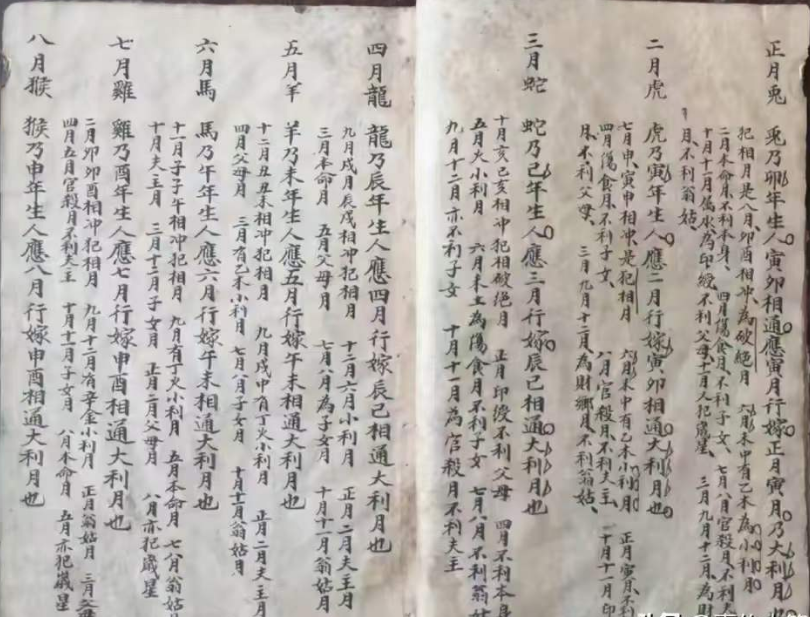 正月兎 兎乃卯年生人寅卯相通應寅月行嫁正月寅月乃大利月也
犯相月是八月、卯酉相冲、為破絕月 六月未中有乙木為小利月
二月本命月、不利本身、四月傷食月、不利子女、七月八月官殺月、不利夫
十月十一月属水為印綬、不利父母、十一月又犯歲星、三月九月十二月、為財
月、不利翁姑、
二月虎 虎乃寅年生人應二月行嫁寅卯相通大利月也
七月申、寅申相冲、是犯相月 六月未中有乙木小利月 正月寅月、不利
四月傷食月、不利子女、八月官殺月、不利夫主、十月十一月印
月、不利父母、三月九月十二月、為財鄉月、不利翁姑、
三月蛇 蛇乃己年生人應三月行嫁辰己相通大利月也
十月亥己亥相冲犯相破絕月 正月印綬不利父母 四月不利本身
五月火小利月 六月未土為傷食月不利子女 七月八月不利翁姑
九月十二月亦不利子女 十月十一月為官殺月不利夫主
四月龍 龍乃辰年生人應四月行嫁辰己相通大利月也
九月戌月辰戌相冲犯相月 十二月六月小利月 正月二月夫主月
三月本命月 五月父母月 七月八月為子女月 十月十一月翁姑月
五月羊 羊乃未年生人應五月行嫁午未相通大利月也
十二月丑丑未相冲犯相月 九月戌中有丁火小利月 正月二月夫主月
四月父母月 三月有乙木小利月 七月八月子女月 十月十一月翁姑月
六月馬 馬乃午年生人應六月行嫁午未相通大利月也
十一月子子午相冲犯相月 九月有丁火小利月 五月本命月 七八月翁姑
十月夫主月 三月十二月子女月 正月二月父母月 八月亦犯歲星
七月雞 雞乃酉年生人應七月行嫁申酉相通大利月也
二月卯卯酉相冲犯相月 九月十二月有辛金小利月 正月翁姑月 三月父母
四月五月官殺月不利夫主 十月十一月子女月 八月本命月 五月亦犯歲星
八月猴 猴乃申年生人應八月行嫁申酉相通大利月也